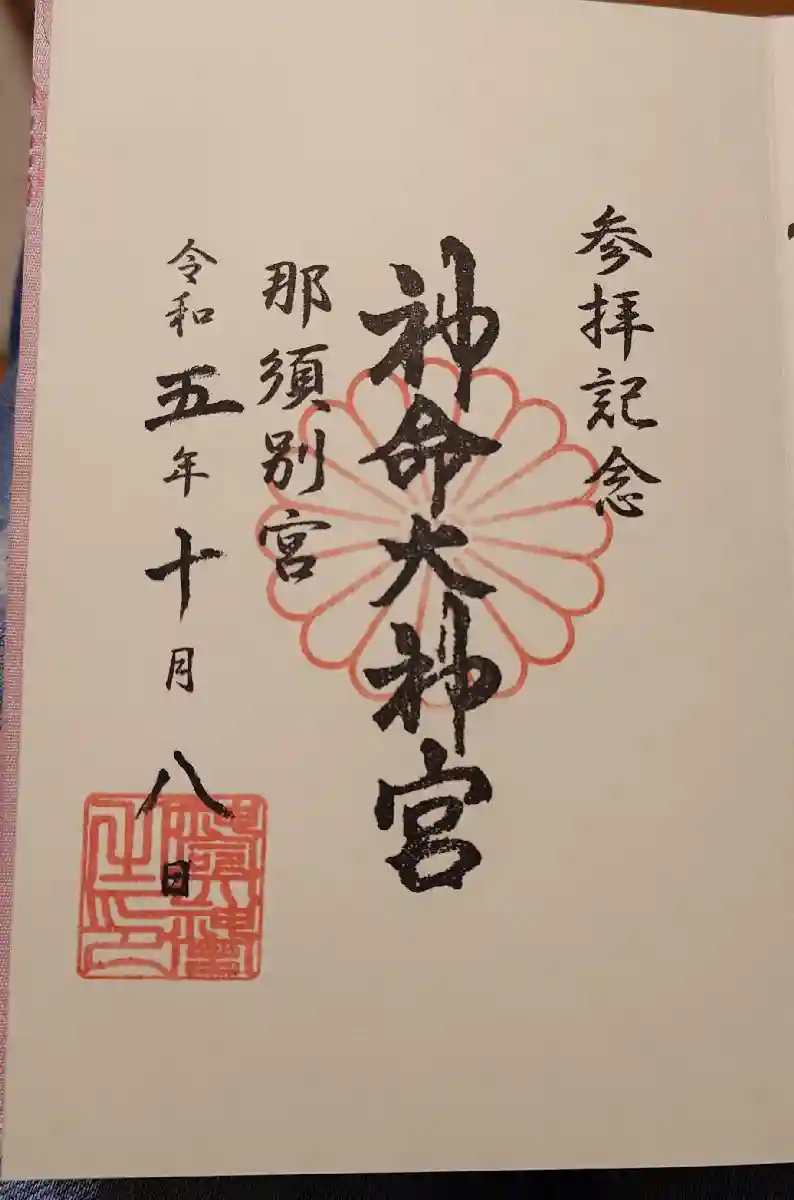 参拝記念
神命大神宮
那須別宮
令和五年十月八日